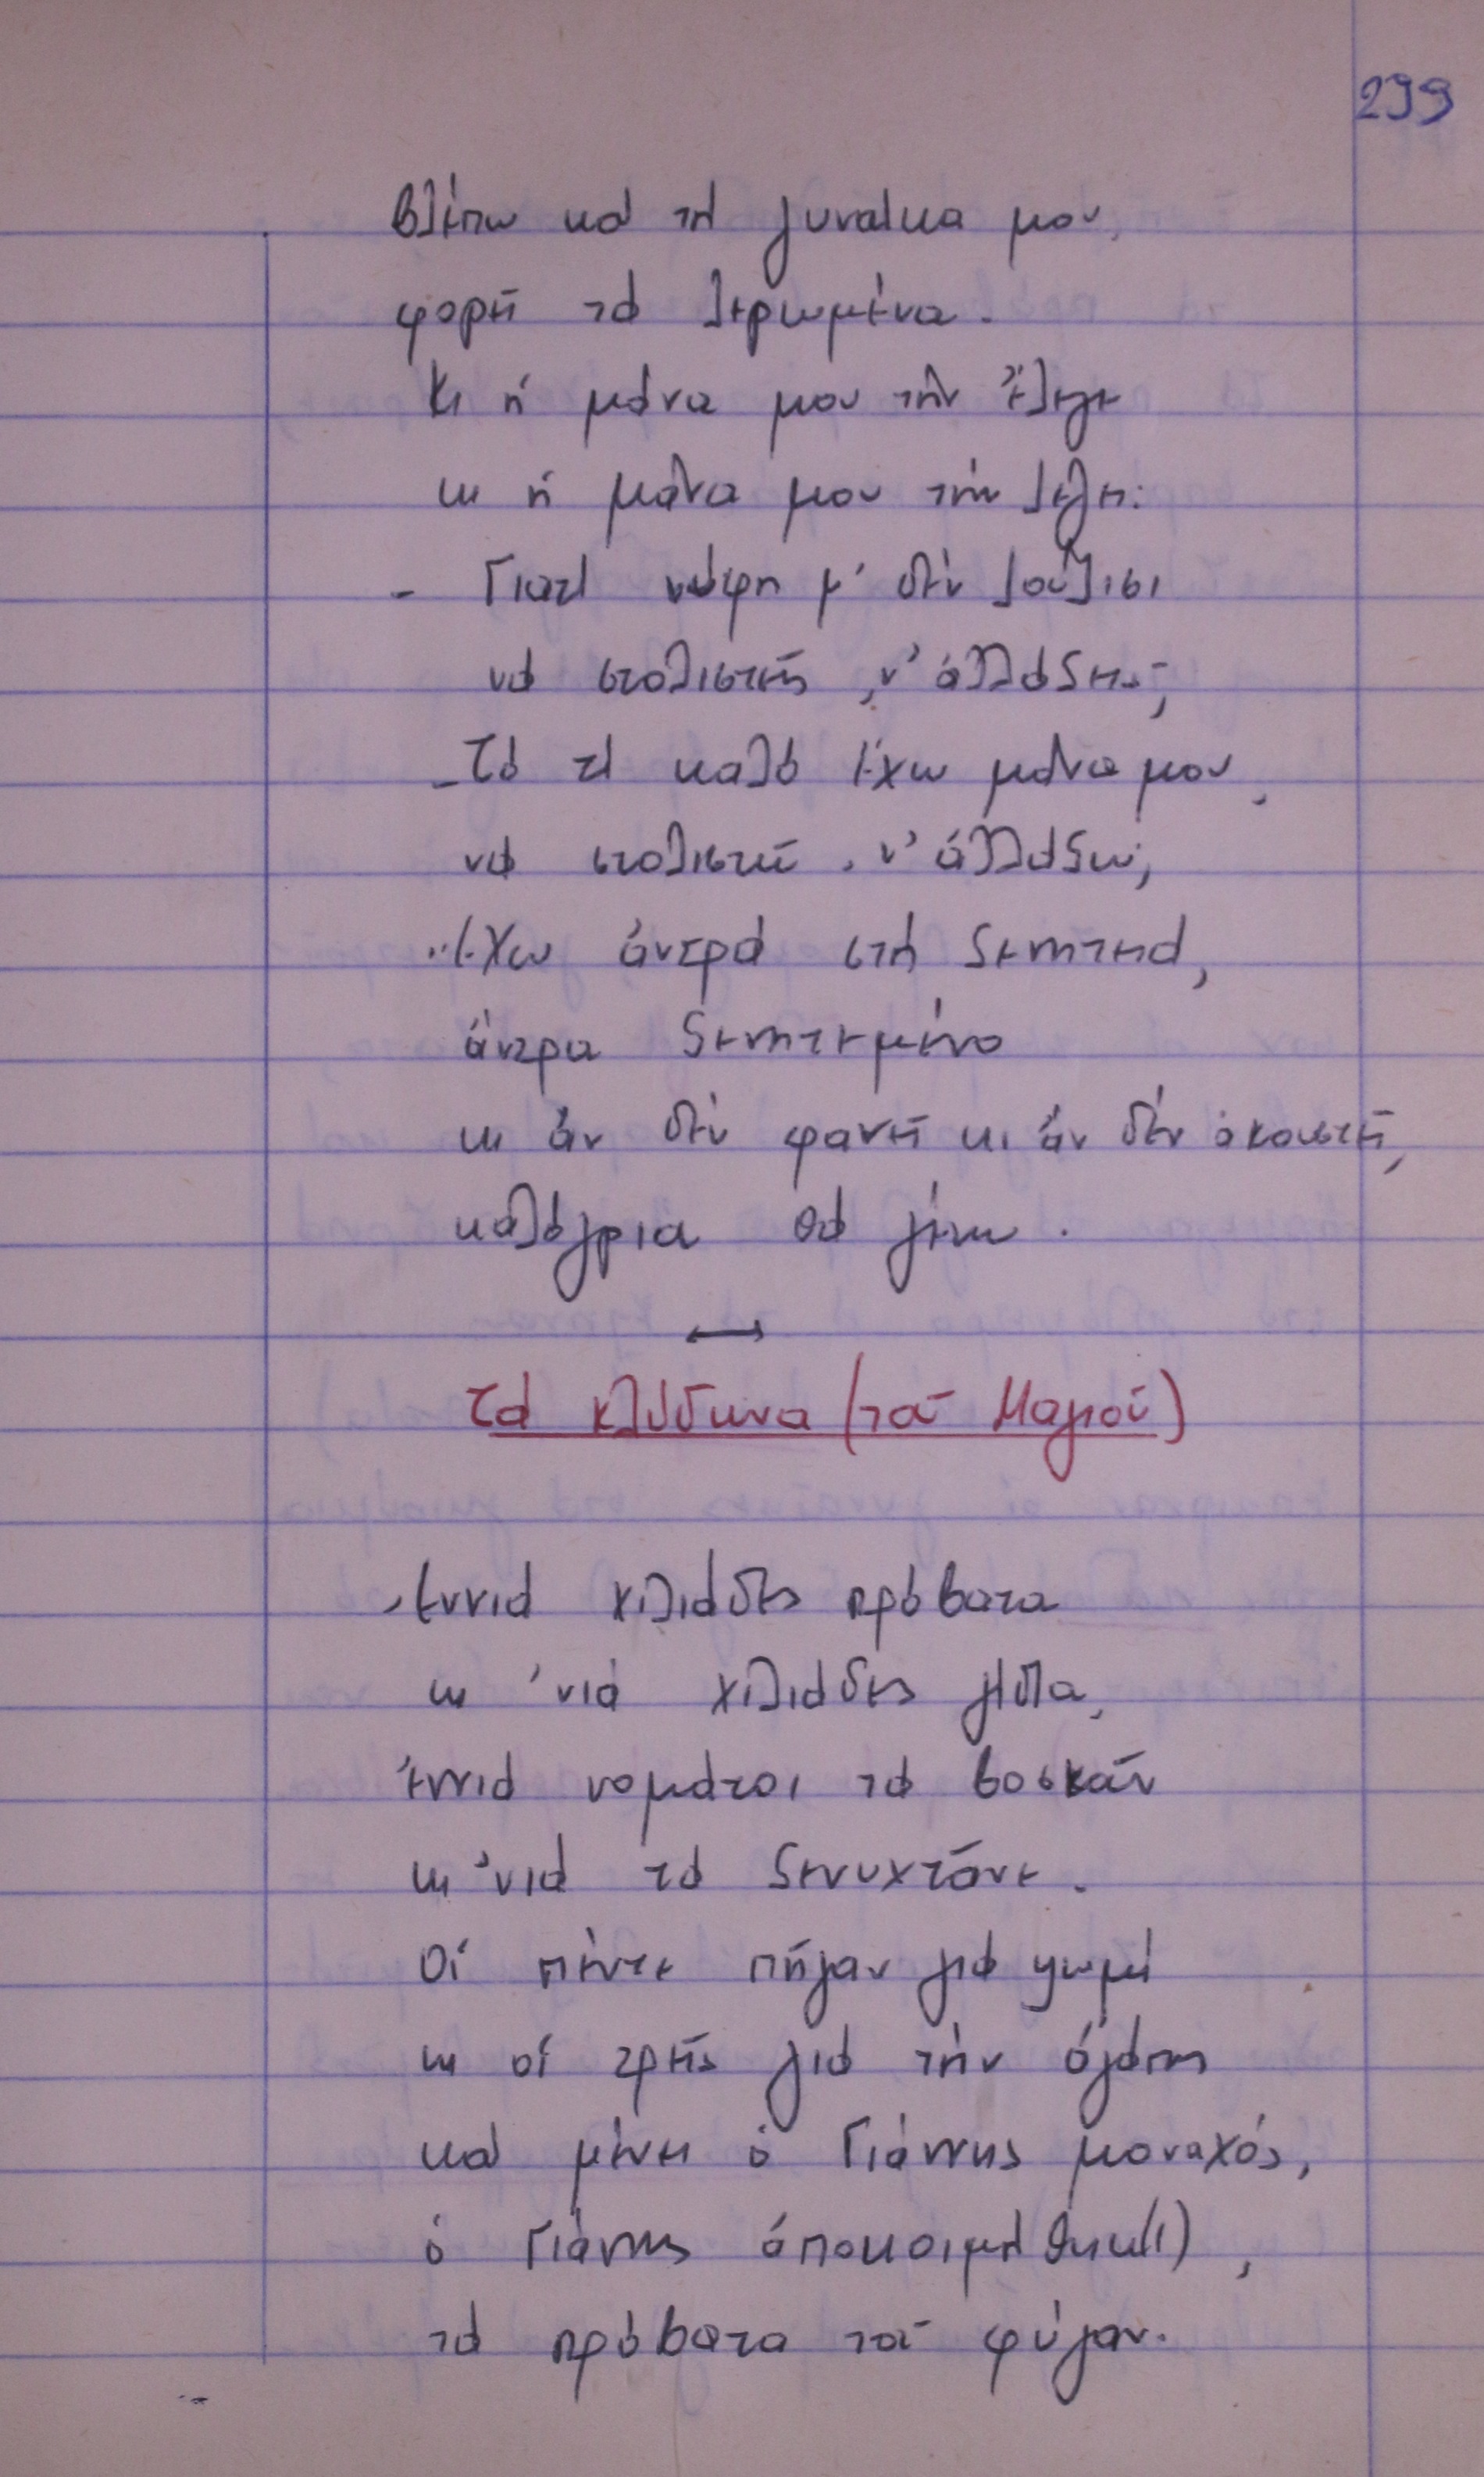 299
βλέπω καὶ τὴ γυναίκα μου,
φορεῖ τὰ λερωμένα.
Κι ἡ μάνα μου τὴν ἔλεγε
κι ἡ μάνα μου τὴν λέγει:
- Γιατί νύφη μ' δὲν λούζισι
νὰ στολιστῆς, ν' ἀλλάξης;
- Τὸ τί καλὸ ἔχω μάνα μου,
νὰ στολιστῶ, ν' ἀλλάξω;
Ἔχω ἄντρα στὴ ξενητειά,
ἄντρα ξενητεμένο
κι ἂν δὲν φανῆ κι ἂν δὲν ἀκουστῆ,
καλόγρια θὰ γίνω.
Τὰ κλύδωνα (τοῦ Μαγιοῦ)
Ἐννιὰ χιλιάδες πρόβατα
κι 'νιὰ χιλιάδες γίδια,
ἐννιὰ νομάτοι τὰ βοσκᾶν
κι 'νιὰ τὰ ξενυχτᾶνε.
Οἱ πέντε πήγαν γιὰ ψωμὶ
κι οἱ τρεῖς γιὰ τὴν ἀγάπη
καὶ μένει ὁ Γιάννης μοναχός,
ὁ Γιάννης ἀποκοιμήθηκε(ι),
τὰ πρόβατα τοῦ φύγαν.